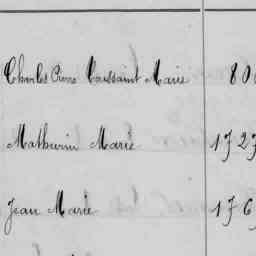 Charles Pierre Toussaint Marie 80
Mathurin Marie 1727
Jean Marie 176